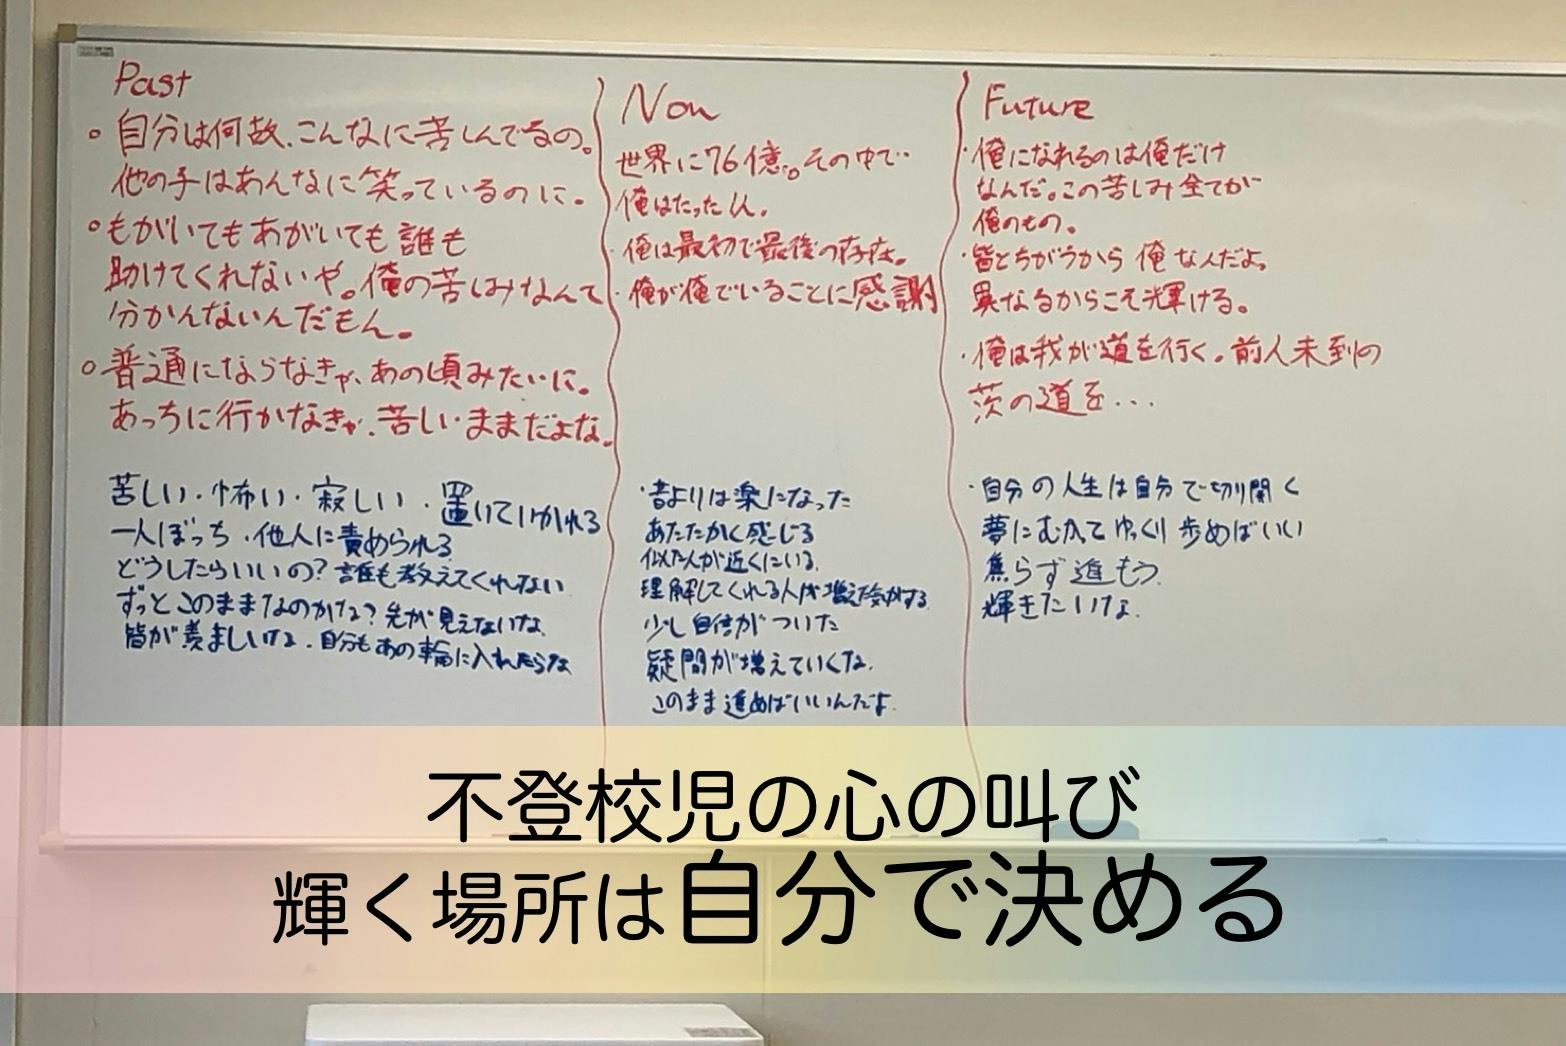 Past
。自分は何故、こんなに苦しんでるの。
他の子はあんなに笑っているのに。
。もがいてもあがいても誰も
助けてくれないや。俺の苦しみなんて
分かんないんだもん。
。普通にならなきゃ、あの頃みたいに。
あっちに行かなきゃ、苦しいままだよな。
苦しい・怖い・寂しい・置いていかれる
一人ぼっち・他人に責められる
どうしたらいいの?誰も教えてくれない
ずっとこのままなのかな?先が見えないな
皆が羨ましいな、自分もあの輪に入れたらな
Now
世界に76億。その中で
俺はたった1人。
・俺は最初で最後の存在。
・俺が俺でいることに感謝
・昔よりは楽になった
あたたかく感じる
似た人が近くにいる
理解してくれる人が増えた気がする
少し自信がついた
疑問が増えていくな
このまま進めばいいんだよ
Future
・俺になれるのは俺だけ
なんだ。この苦しみ全てが
俺のもの。
・皆とちがうから俺なんだよ。
異なるからこそ輝ける。
・俺は我が道を行く。前人未到の
茨の道を...
・自分の人生は自分で切り開く
夢にむかってゆっくり歩めばいい
焦らず進もう
輝きたいけな
不登校児の心の叫び
輝く場所は自分で決める